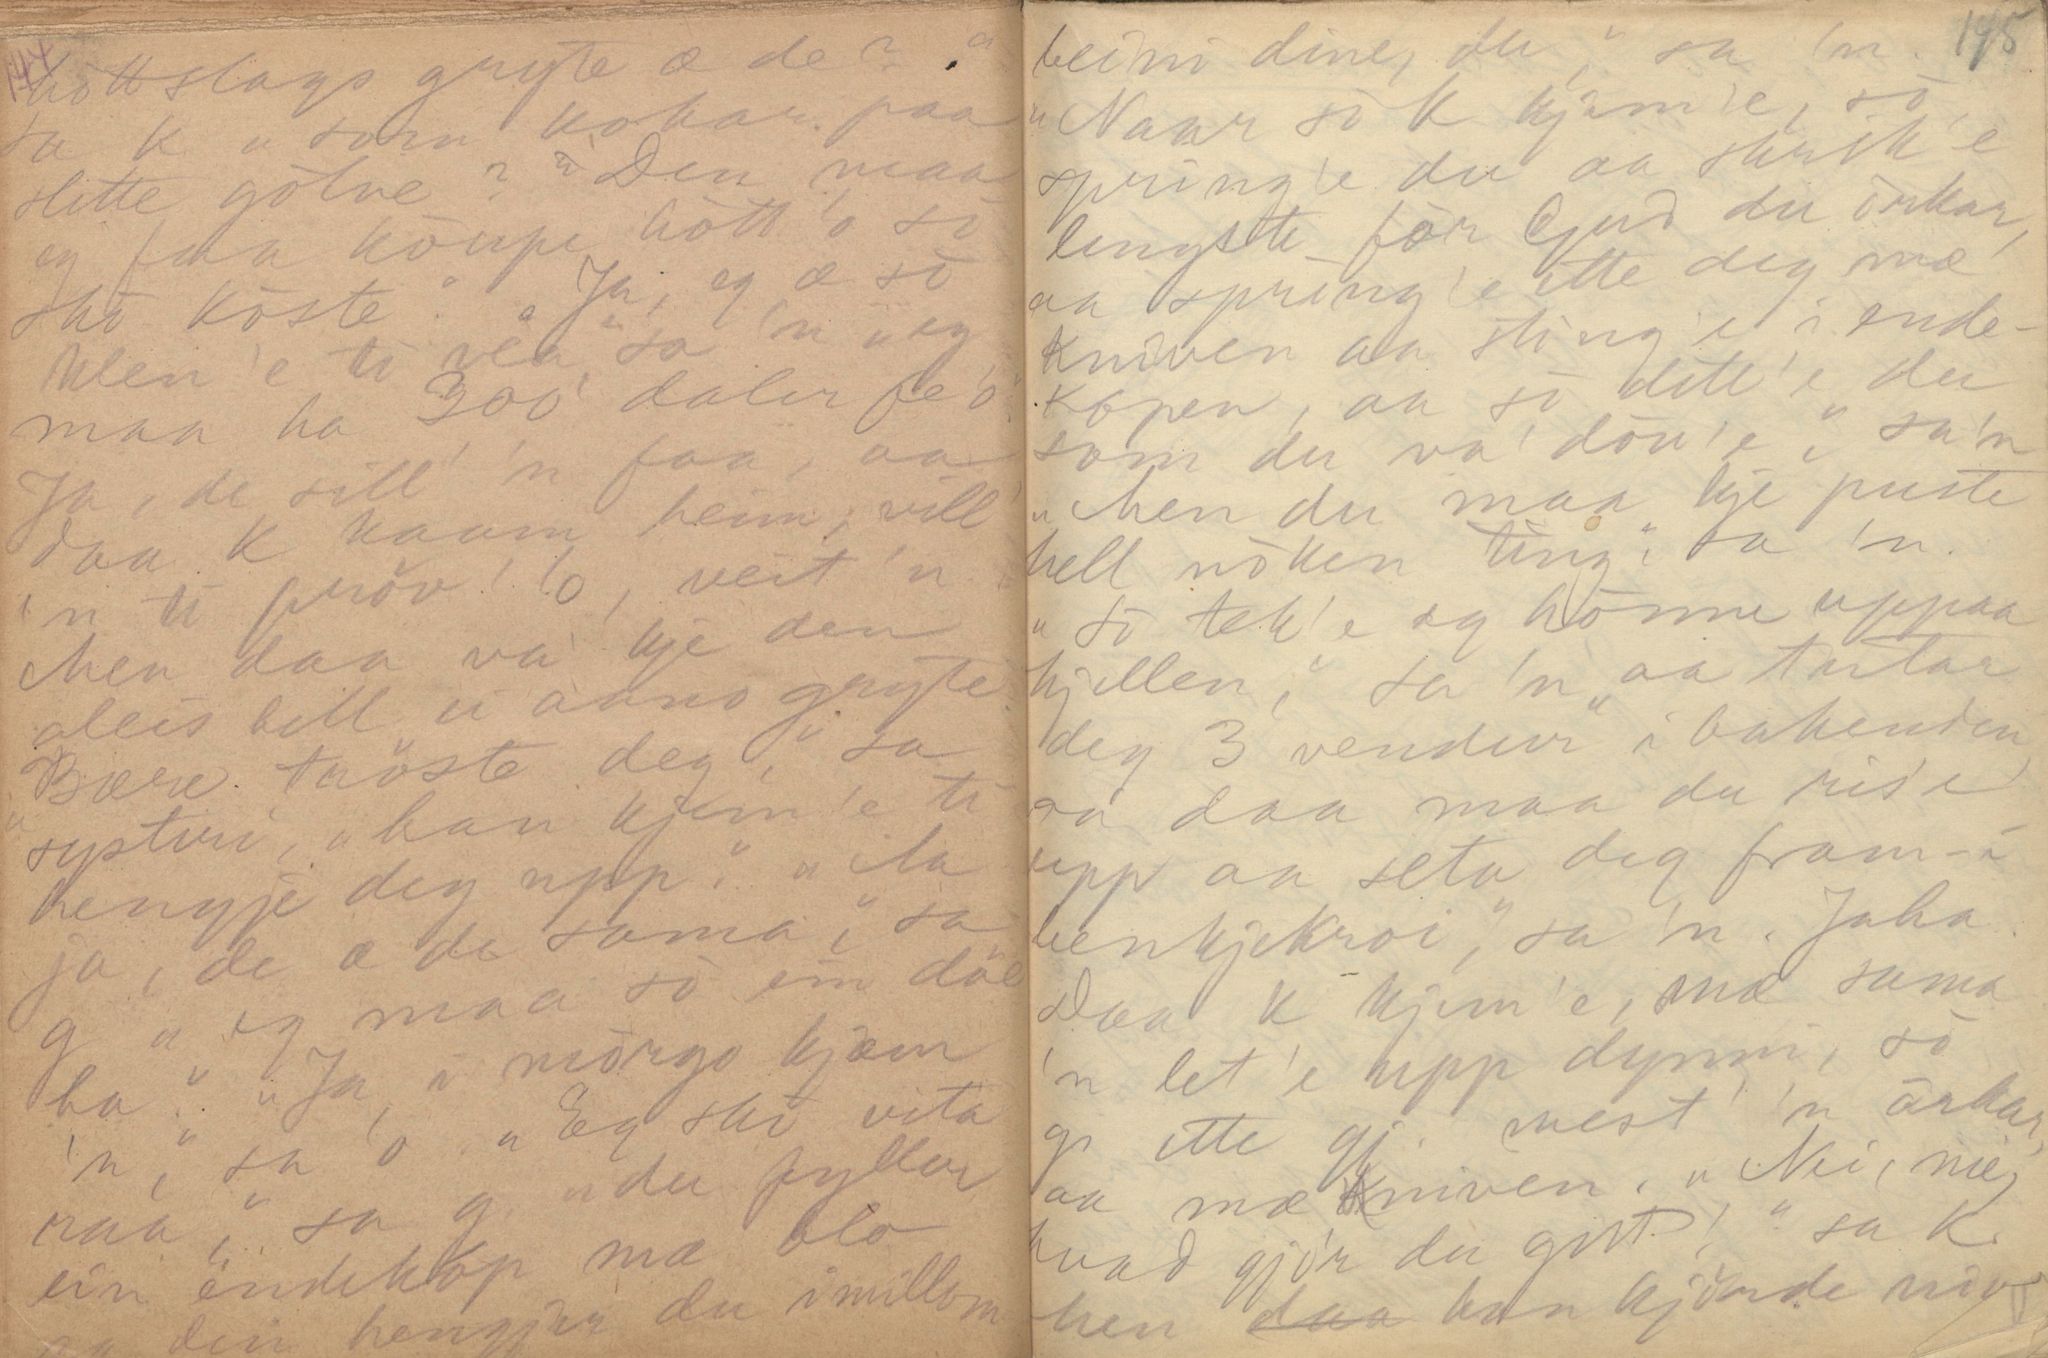 144
höttslags gryte æ de? "
sa K "som kokar paa
slitte gölve?" "Den maa
eg faa köupe hött 'o sö
skö köste." "Ja, eg æ sö
klen 'e ti vea," sa 'n "eg
maa ha 300 daler fe 'o."
Ja, de sill' 'n faa, aa
daa K kaam heim, vill'
'n ti pröv' 'o, veit 'n.
Men daa va' kje den
aleis bell ei aano gryte.
"Bære tröste deg," sa
systeri, "han kjem'e ti
hengje deg upp." "Aa
ja, de æ de sama," sa
g "eg maa sö ein döe
ha." "Ja, i mörgo kjæm
'n," sa 'o. "Eg skö vita
raa," sa g. "du fyller
ein endeköp mæ blo
aa din hengjer du imillom
145
beini dine, du," sa 'n.
"Naar sö K kjæm'e, sö
spring'e du aa skrik'e
lengste för ljud du örkar,
aa spring'e ette deg mæ
kniven aa sting'e i ende-
köpen, aa sö dett'e du
som du va' döu'e," sa 'n
"Men du maa kje puste
hell nöken ting" sa 'n.
"Sö tek'e eg hönne uppaa
hjellen," sa 'n "aa tutar
deg 3 vendur i bakenden,
aa daa maa du ris'e
upp aa seta deg fram-i
benkjekroi," sa 'n. Jaha.
Daa K kjem'e, mæ sama
'n let'e upp dynni, sö
g. ette gj. mest' 'n örkar,
aa mæ kniven. "Nei, nei,
hvad gjör du gutt!" sa K.
Men han kjörde niv-